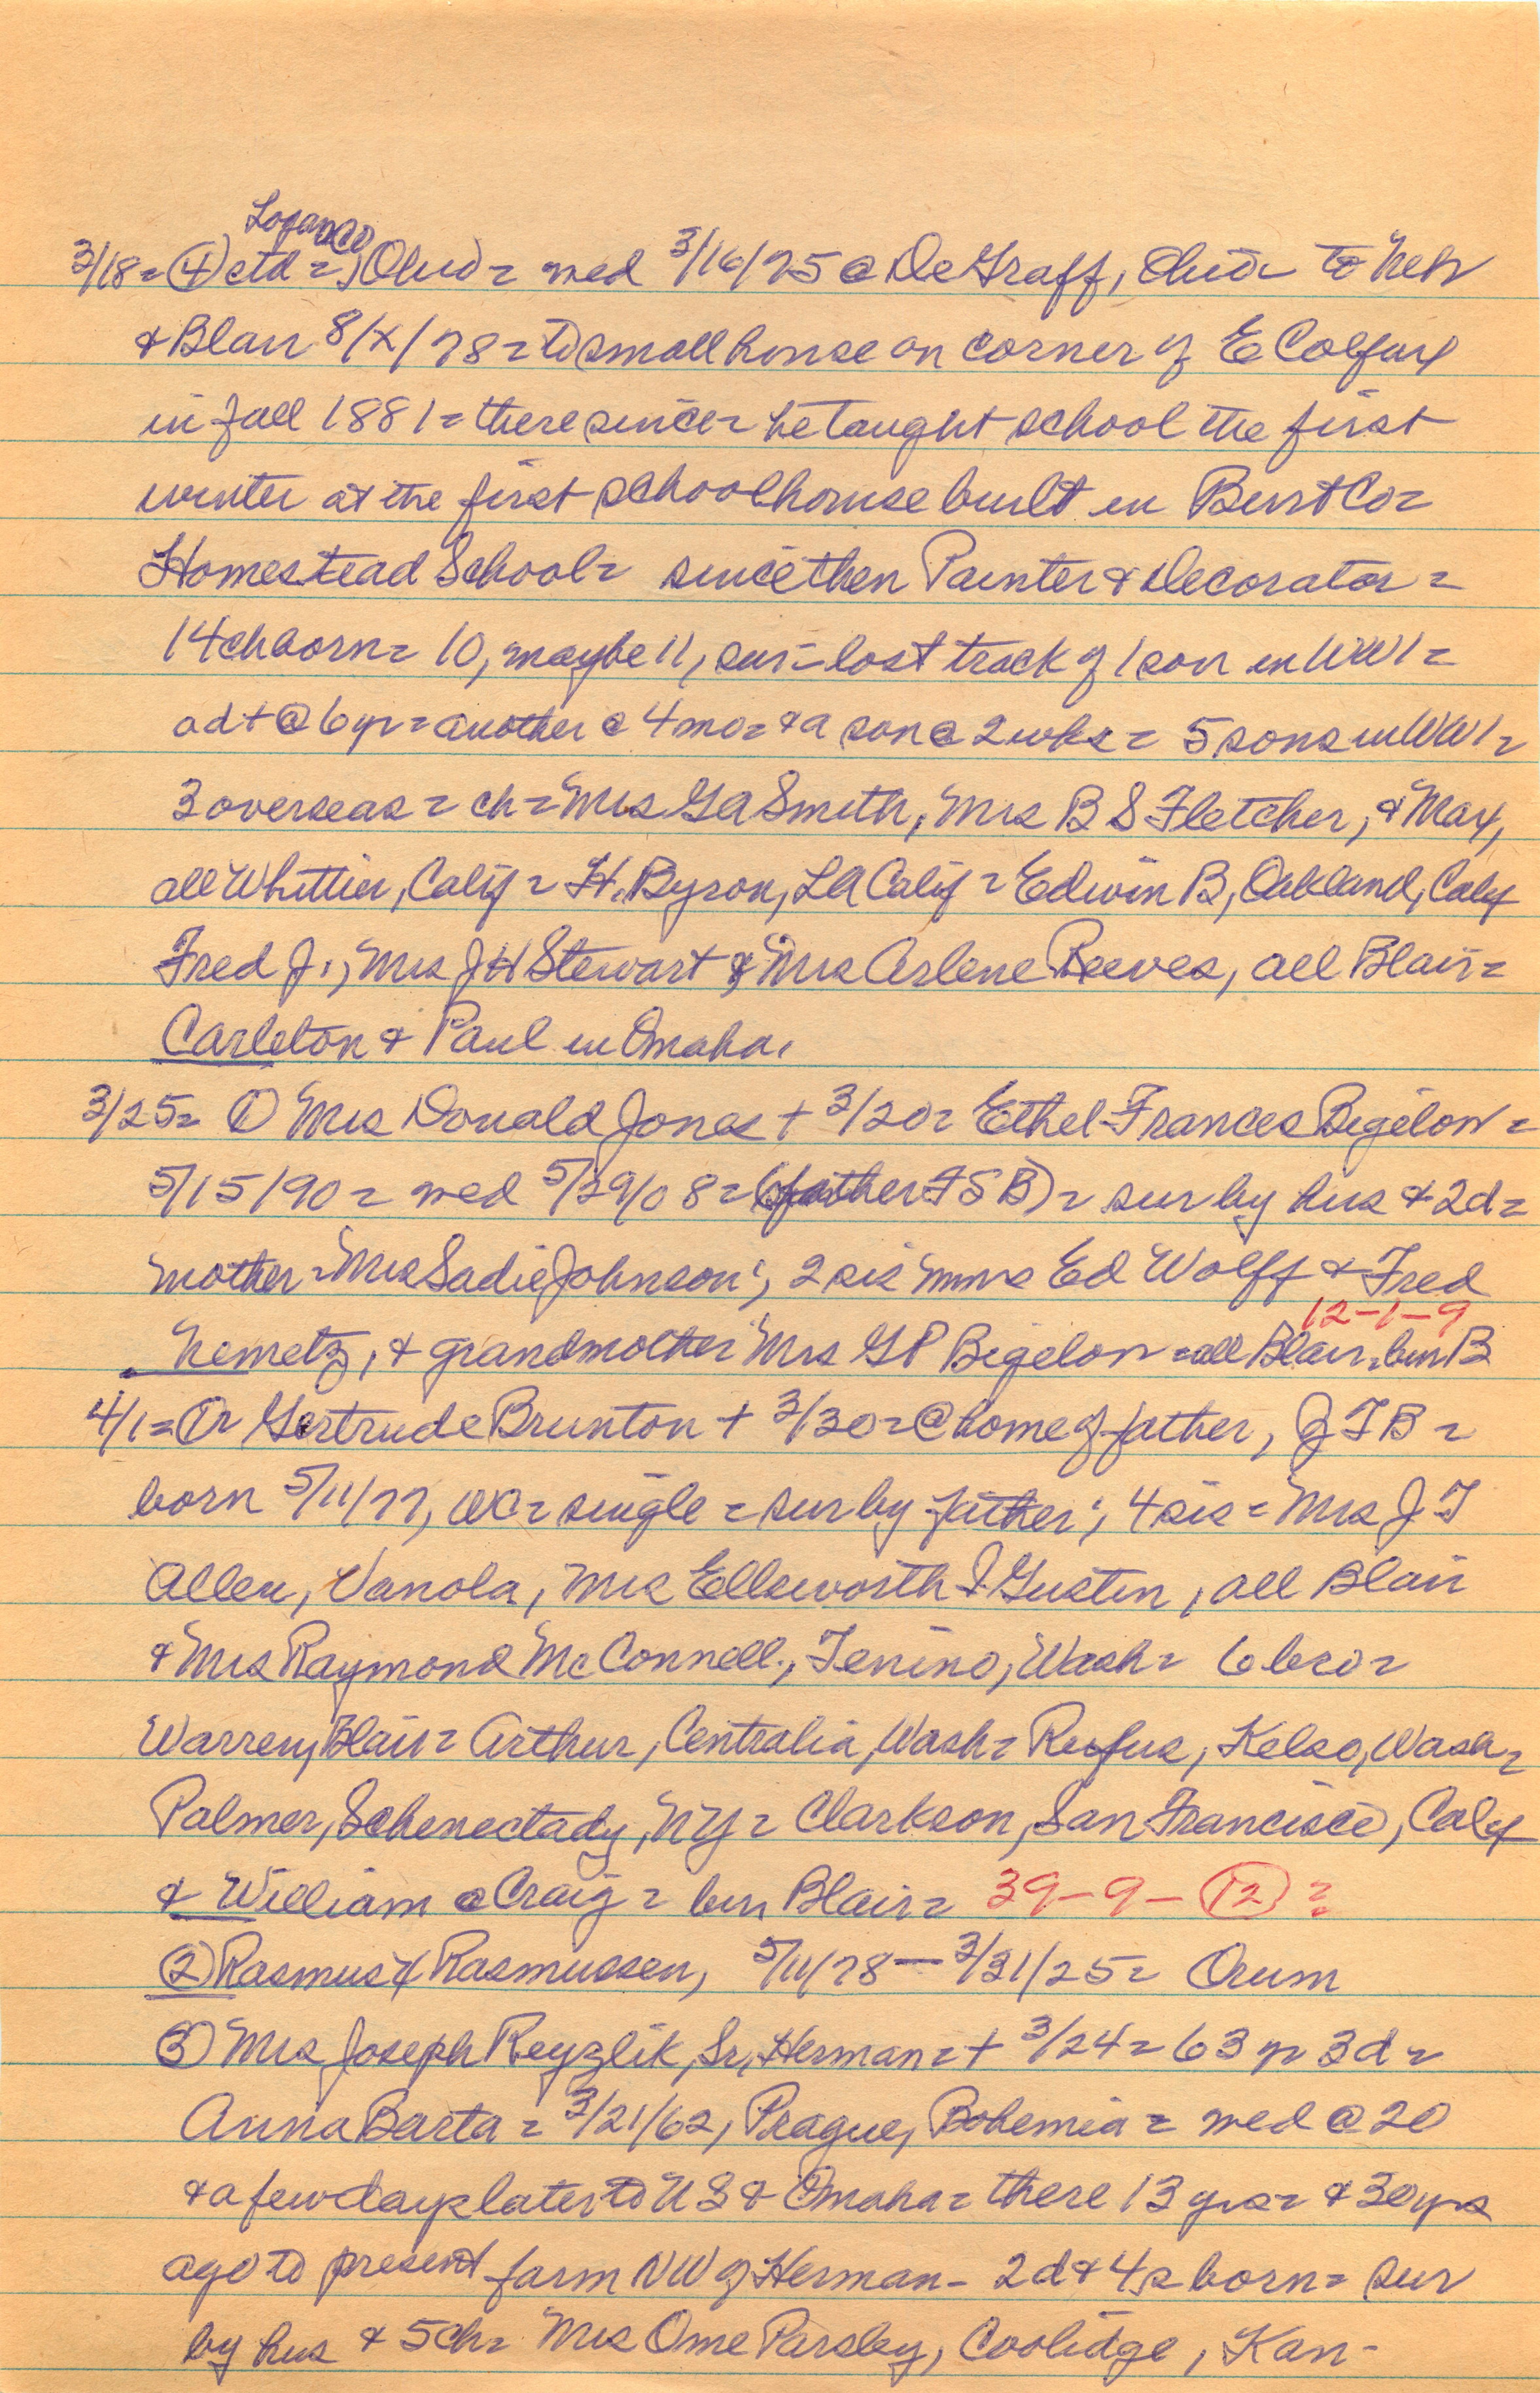 Logan Co
3/18= ④ ctd =, Ohio = med 3/16/75 @ DeGraff, Ohio = to Neb
& Blair 8/x/78 = to small house on corner of E Colfax
in fall 1881 = there since = he taught school the first
winter at the first schoolhouse built in Burt Co =
Homestead School = since then Painter & Decorator =
14 ch born = 10, maybe 11, sur = lost track of 1 son in WW1 =
a d + @ 6 yr = another @ 4 mo = & a son @ 2 wks = 5 sons in WW1 =
3 overseas = ch = Mrs GA Smith, Mrs B S Fletcher, & May,
all Whittier, Calif = H. Byron, LA Calif = Edwin B, Oakland, Calif
Fred J., Mrs JH Stewart & Mrs Arlene Reeves, all Blair =
Carleton & Paul in Omaha.
3/25= ① Mrs Donald Jones + 3/20 = Ethel Frances Bigelow =
5/15/90 = med 5/29/08 = (father FSB) = sur by hus & 2d =
mother = Mrs Sadie Johnson; 2 sis Mmes Ed Wolff & Fred
12-1-9
Nemetz, & grandmother Mrs GP Bigelow = all Blair = bur B
4/1= ① Gertrude Brunton + 3/30 = @ home of father, JTB =
born 5/11/77, WC = single = sur by father; 4 sis = Mrs J T
Allen, Vanola, Mrs Ellsworth I Gustin, all Blair
& Mrs Raymond McConnell, Tenino, Wash = 6 bro =
Warren, Blair = Arthur, Centralia, Wash = Rufus, Kelso, Wash =
Palmer, Schenectady, NY = Clarkson, San Francisco, Calif
& William @ Craig = bur Blair = 39-9-⑫ =
② Rasmus Rasmussen, 5/11/78 — 3/31/25 = Orum
③ Mrs Joseph Reyzlik, Sr, Herman = + 3/24 = 63 yr 3 d =
Anna Barta = 3/21/62, Prague, Bohemia = med @ 20
& a few days later to US & Omaha = there 13 yrs = & 30 yrs
ago to present farm NW of Herman - 2d & 4s born = sur
by hus & 5 ch = Mrs Ome Parsley, Coolidge, Kan -